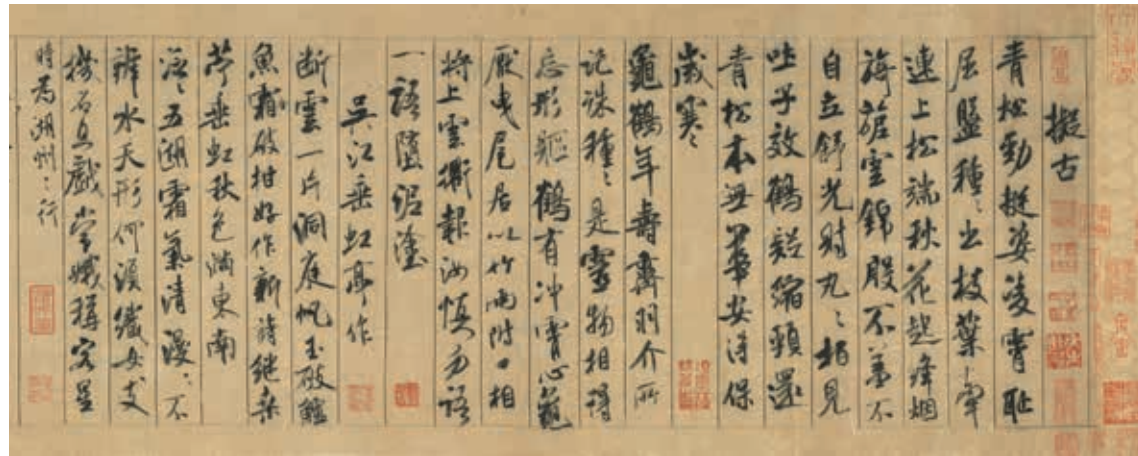 擬古
青松勁挺姿凌霄恥
屈盤種〻出枝葉牽
連上松端秋花起絳烟
旖旎雲錦殷不羞不
自立舒光射丸〻柏見
吐子效鶴疑縮頸還
青松本無華安得保
歲寒
龜鶴年壽齊羽介所
託殊種〻是靈物相得
忘形軀鶴有冲霄心龜
厭曳尾居以竹兩附口相
將上雲衢報汝慎勿語
一語墮泥塗
吳江垂虹亭作
断雲一片洞庭帆玉破鱸
魚霜破柑好作新詩繼桑
苧垂虹秋色滿東南
泛〻五湖霜氣清漫〻不
辨水天形何須織女支
機石且戲常娥稱客星
時為湖州之行